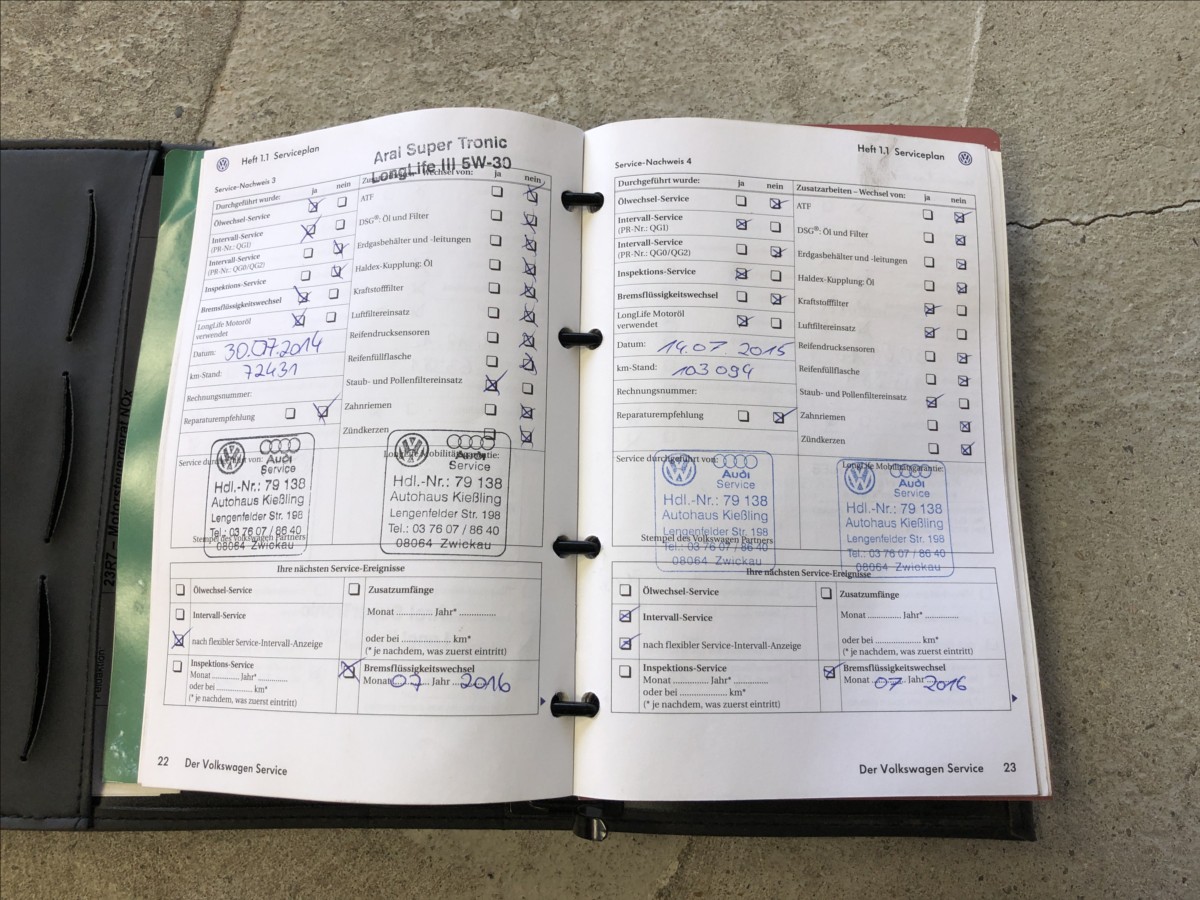 Heft 1.1 Serviceplan
Arai Super Tronic
LongLife III 5W-30
Service-Nachweis 3
Durchgeführt wurde: ja nein
Ölwechsel-Service
Intervall-Service
(PR-Nr.: QG1)
Intervall-Service
(PR-Nr.: QG0/QG2)
Inspektions-Service
Bremsflüssigkeitswechsel
LongLife Motoröl
verwendet
Datum: 30.07.2014
km-Stand: 72431
Rechnungsnummer:
Reparaturempfehlung
Wechsel von: ja nein
ATF
DSG®: Öl und Filter
Erdgasbehälter und -leitungen
Haldex-Kupplung: Öl
Kraftstofffilter
Luftfiltereinsatz
Reifendrucksensoren
Reifenfüllflasche
Staub- und Pollenfiltereinsatz
Zahnriemen
Zündkerzen
Service durchgeführt von:
Audi
Service
Hdl.-Nr.: 79 138
Autohaus Kießling
Lengenfelder Str. 198
Tel.: 03 76 07 / 86 40
08064 Zwickau
Stempel des Volkswagen Partners
LongLife Mobilitätsgarantie:
Audi
Service
Hdl.-Nr.: 79 138
Autohaus Kießling
Lengenfelder Str. 198
Tel.: 03 76 07 / 86 40
08064 Zwickau
Ihre nächsten Service-Ereignisse
Ölwechsel-Service
Intervall-Service
nach flexibler Service-Intervall-Anzeige
Inspektions-Service
Monat ............ Jahr* ............
oder bei .................. km*
(* je nachdem, was zuerst eintritt)
Zusatzumfänge
Monat ............... Jahr* ...............
oder bei .................... km*
(* je nachdem, was zuerst eintritt)
Bremsflüssigkeitswechsel
Monat 07 Jahr 2016
22 Der Volkswagen Service
Heft 1.1 Serviceplan
Service-Nachweis 4
Durchgeführt wurde: ja nein
Ölwechsel-Service
Intervall-Service
(PR-Nr.: QG1)
Intervall-Service
(PR-Nr.: QG0/QG2)
Inspektions-Service
Bremsflüssigkeitswechsel
LongLife Motoröl
verwendet
Datum: 14.07 2015
km-Stand: 103 094
Rechnungsnummer:
Reparaturempfehlung
Zusatzarbeiten – Wechsel von: ja nein
ATF
DSG®: Öl und Filter
Erdgasbehälter und -leitungen
Haldex-Kupplung: Öl
Kraftstofffilter
Luftfiltereinsatz
Reifendrucksensoren
Reifenfüllflasche
Staub- und Pollenfiltereinsatz
Zahnriemen
Zündkerzen
Service durchgeführt von:
Audi
Service
Hdl.-Nr.: 79 138
Autohaus Kießling
Lengenfelder Str. 198
Tel.: 03 76 07 / 86 40
08064 Zwickau
Stempel des Volkswagen Partners
LongLife Mobilitätsgarantie:
Audi
Service
Hdl.-Nr.: 79 138
Autohaus Kießling
Lengenfelder Str. 198
Tel.: 03 76 07 / 86 40
08064 Zwickau
Ihre nächsten Service-Ereignisse
Ölwechsel-Service
Intervall-Service
nach flexibler Service-Intervall-Anzeige
Inspektions-Service
Monat ............ Jahr* ............
oder bei .................. km*
(* je nachdem, was zuerst eintritt)
Zusatzumfänge
Monat ............ Jahr* ............
oder bei .................... km*
(* je nachdem, was zuerst eintritt)
Bremsflüssigkeitswechsel
Monat 07 Jahr 2016
Der Volkswagen Service 23
23R7 – Motorsteuergerät NOx